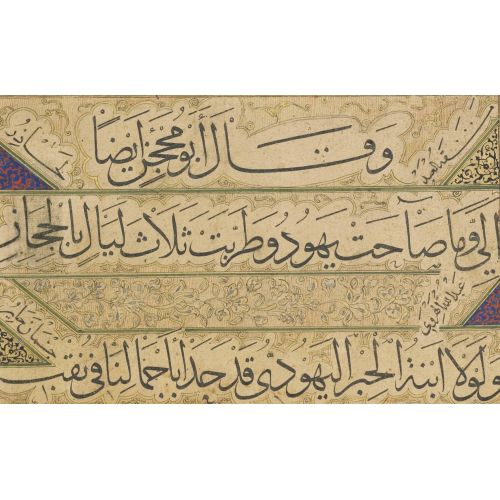 وقال أبو محجن أيضا
إلي وما صاحت يهود وطربت ثلاث ليال بالحجاز
ولولا ابنة الحبر اليهودي قد حدا بأجمالنا في نقب